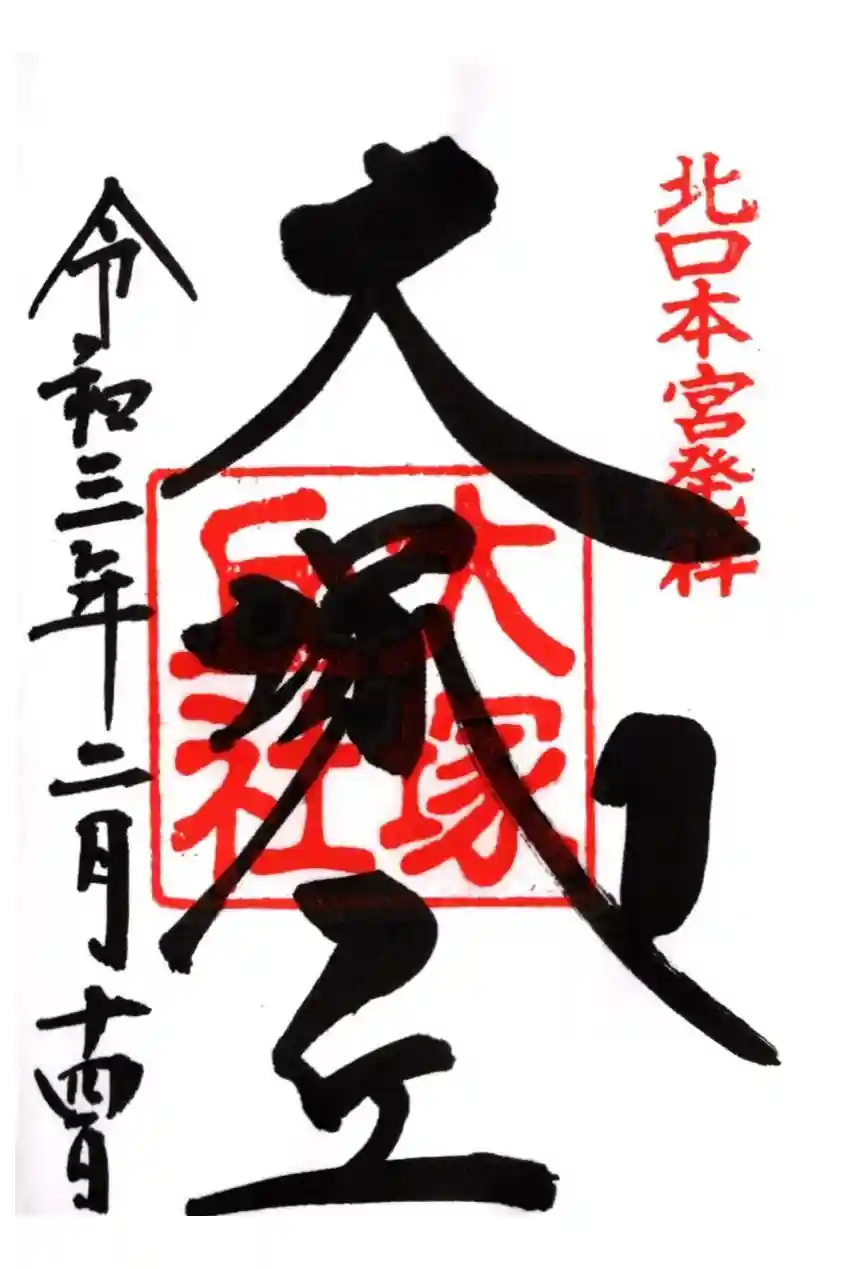 北口本宮発祥
大塚丘
大塚丘社
令和三年二月十四日